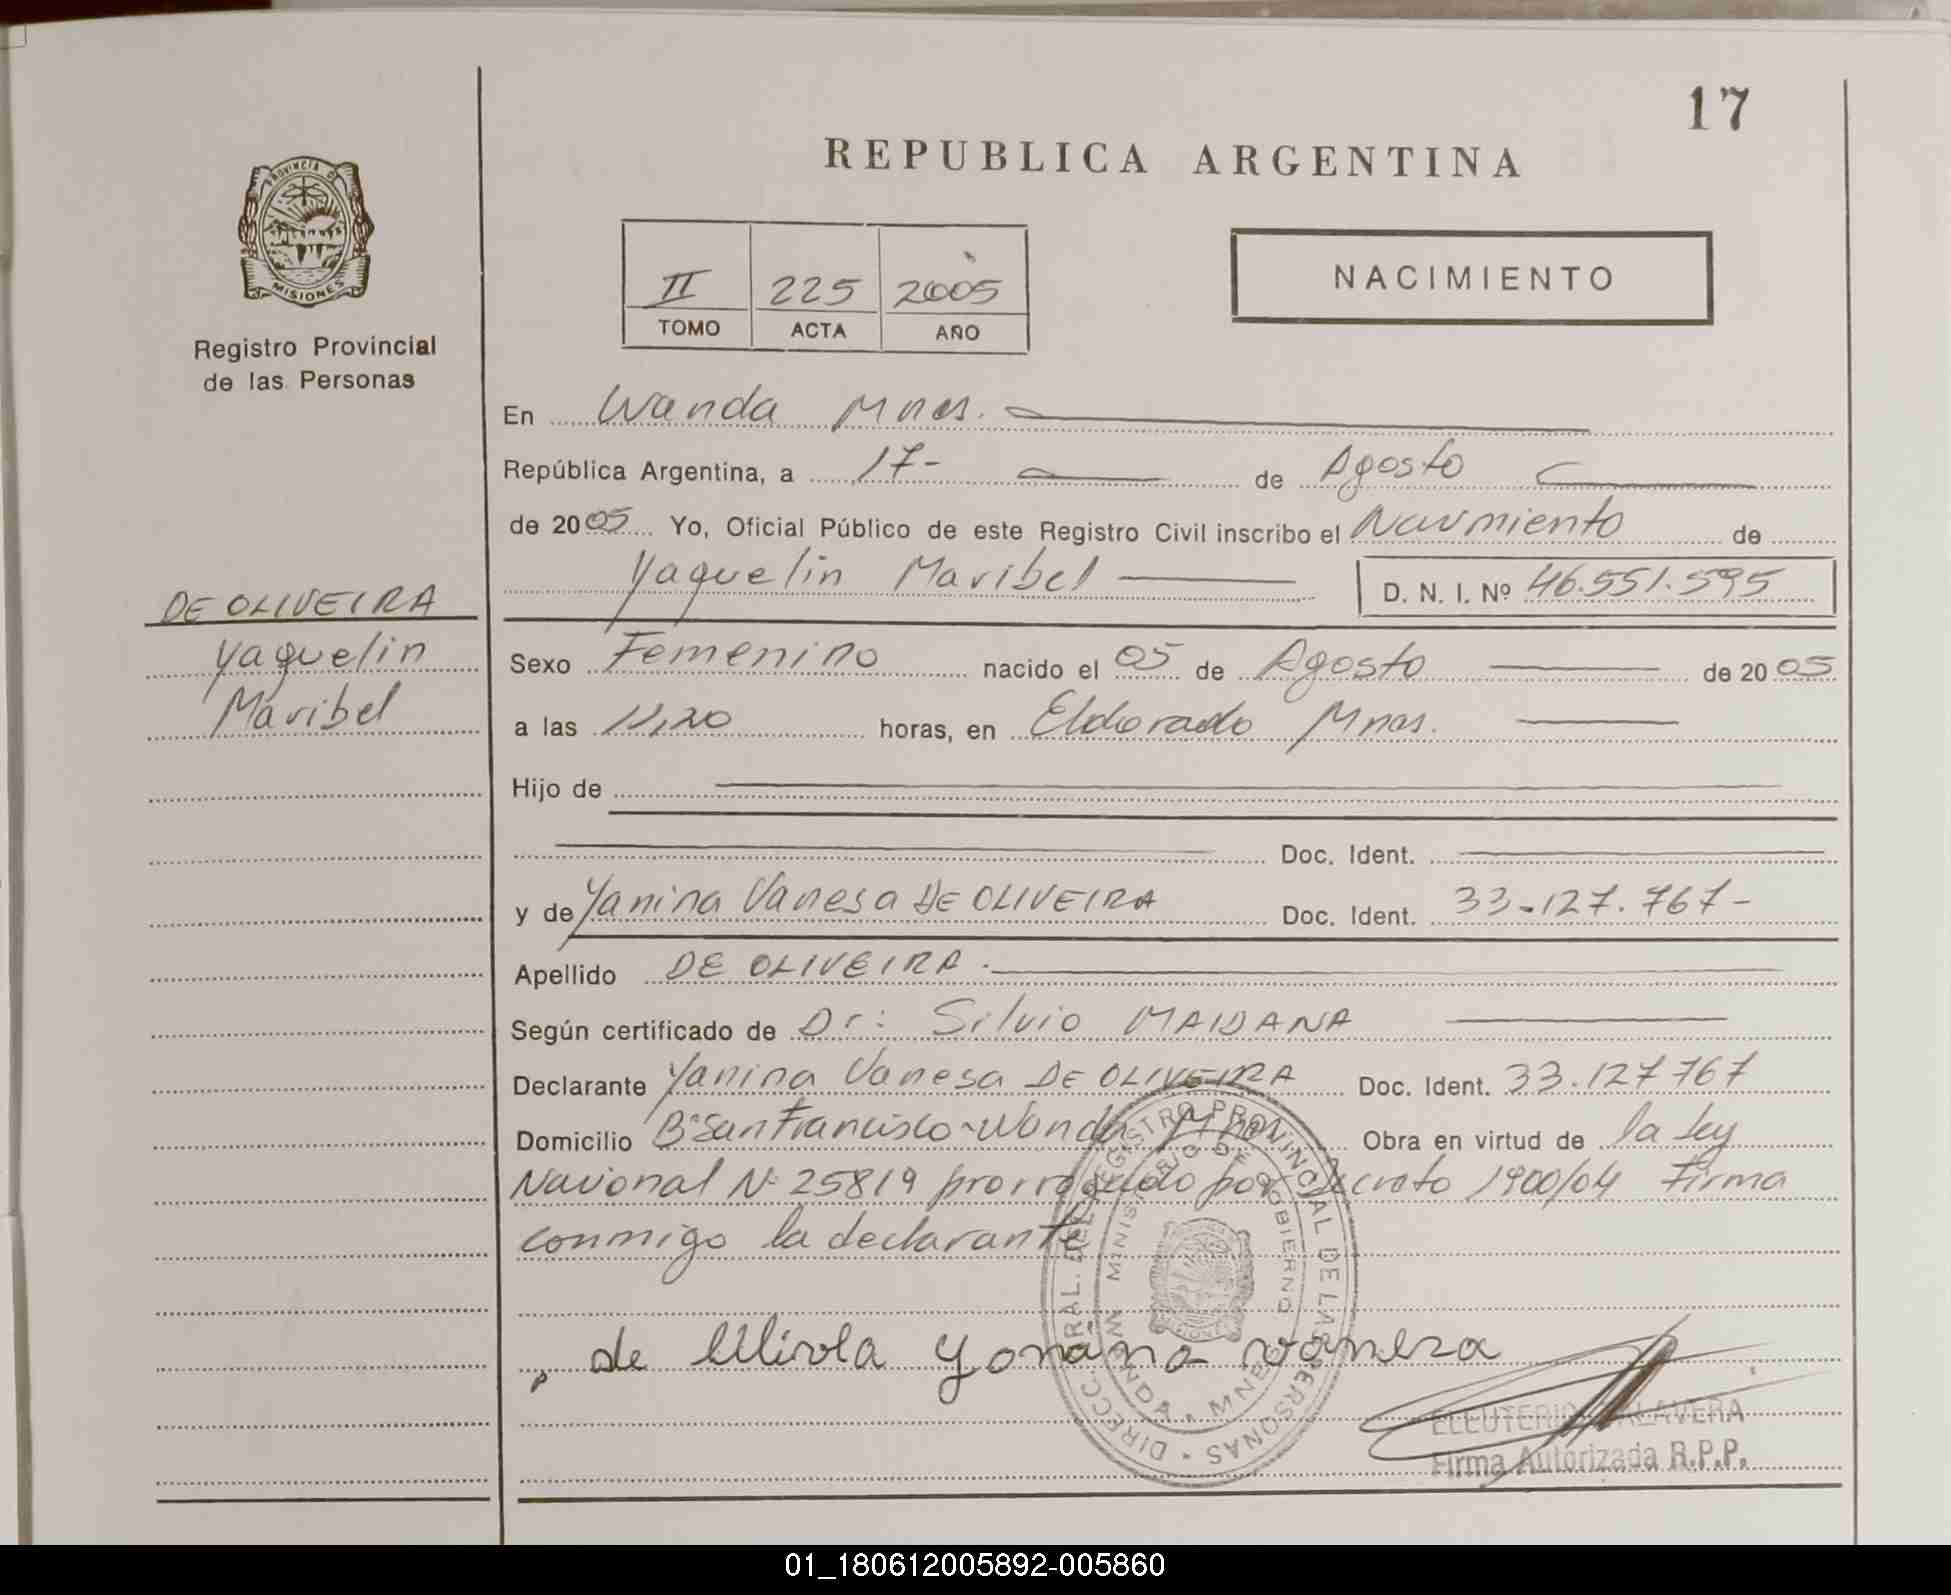 17
REPUBLICA ARGENTINA
PROVINCIA DE
MISIONES
Registro Provincial
de las Personas
II 225 2005
TOMO ACTA AÑO
NACIMIENTO
En Wanda Mnes.
República Argentina, a 17- de Agosto
de 2005 Yo, Oficial Público de este Registro Civil inscribo el Nacimiento de
Yaquelin Maribel D. N. I. Nº 46.551.595
DE OLIVEIRA
Yaquelin
Maribel
Sexo Femenino nacido el 05 de Agosto de 2005
a las 11,20 horas, en Eldorado Mnes.
Hijo de
Doc. Ident.
y de Yanina Vanesa DE OLIVEIRA Doc. Ident. 33.127.767-
Apellido DE OLIVEIRA.
Según certificado de Dr: Silvio MAIDANA
Declarante Yanina Vanesa DE OLIVEIRA Doc. Ident. 33.127767
Domicilio Bº San Francisco-Wanda Mnes Obra en virtud de la Ley
Nacional Nº 25819 prorrogado por Decreto 1900/04 Firma
conmigo la declarante
DIRECC. GRAL. DEL REGISTRO PROVINCIAL DE LAS PERSONAS
MINISTERIO DE GOBIERNO
WANDA - MNES
de Yanina vaneza
ELEUTERIO TALAVERA
Firma Autorizada R.P.P.
01_180612005892-005860